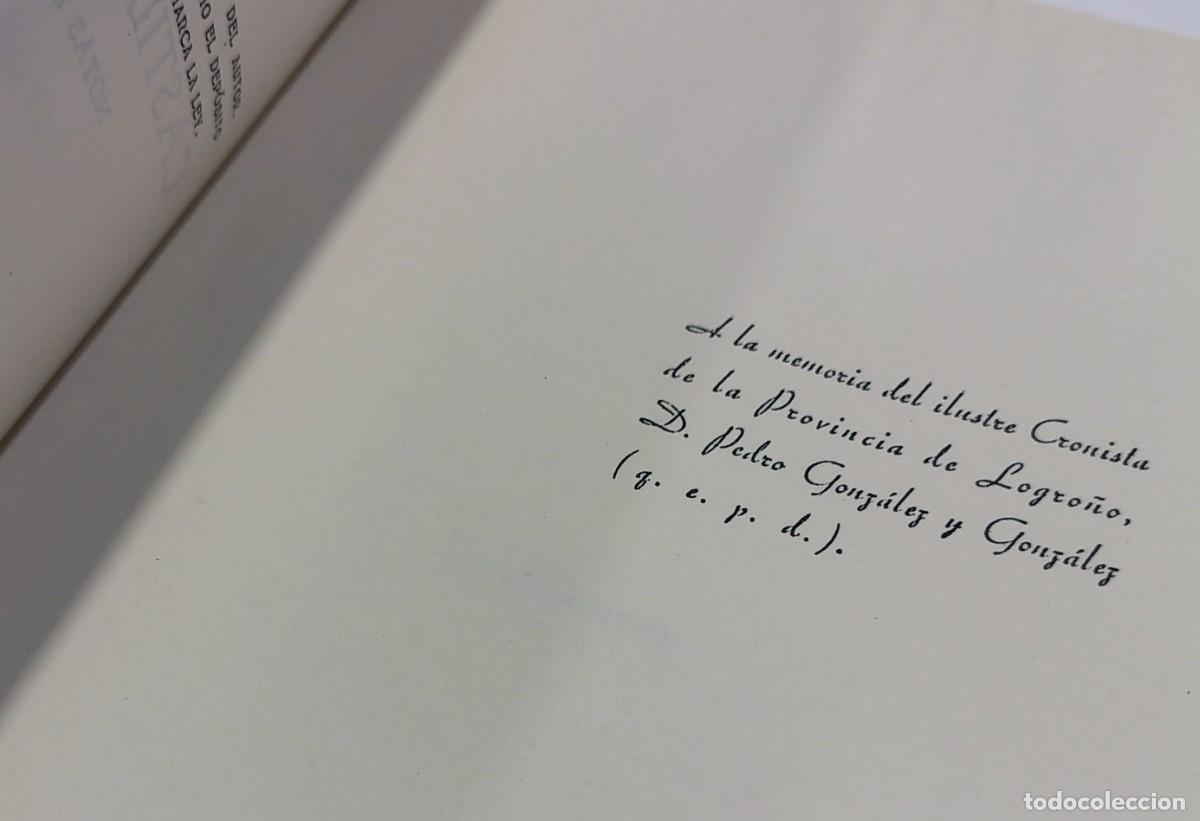 DEL AUTOR.
O EL DEPÓSITO
MARCA LA LEY.
A la memoria del ilustre Cronista
de la Provincia de Logroño,
D. Pedro González y González
(q. e. p. d.).
todocoleccion